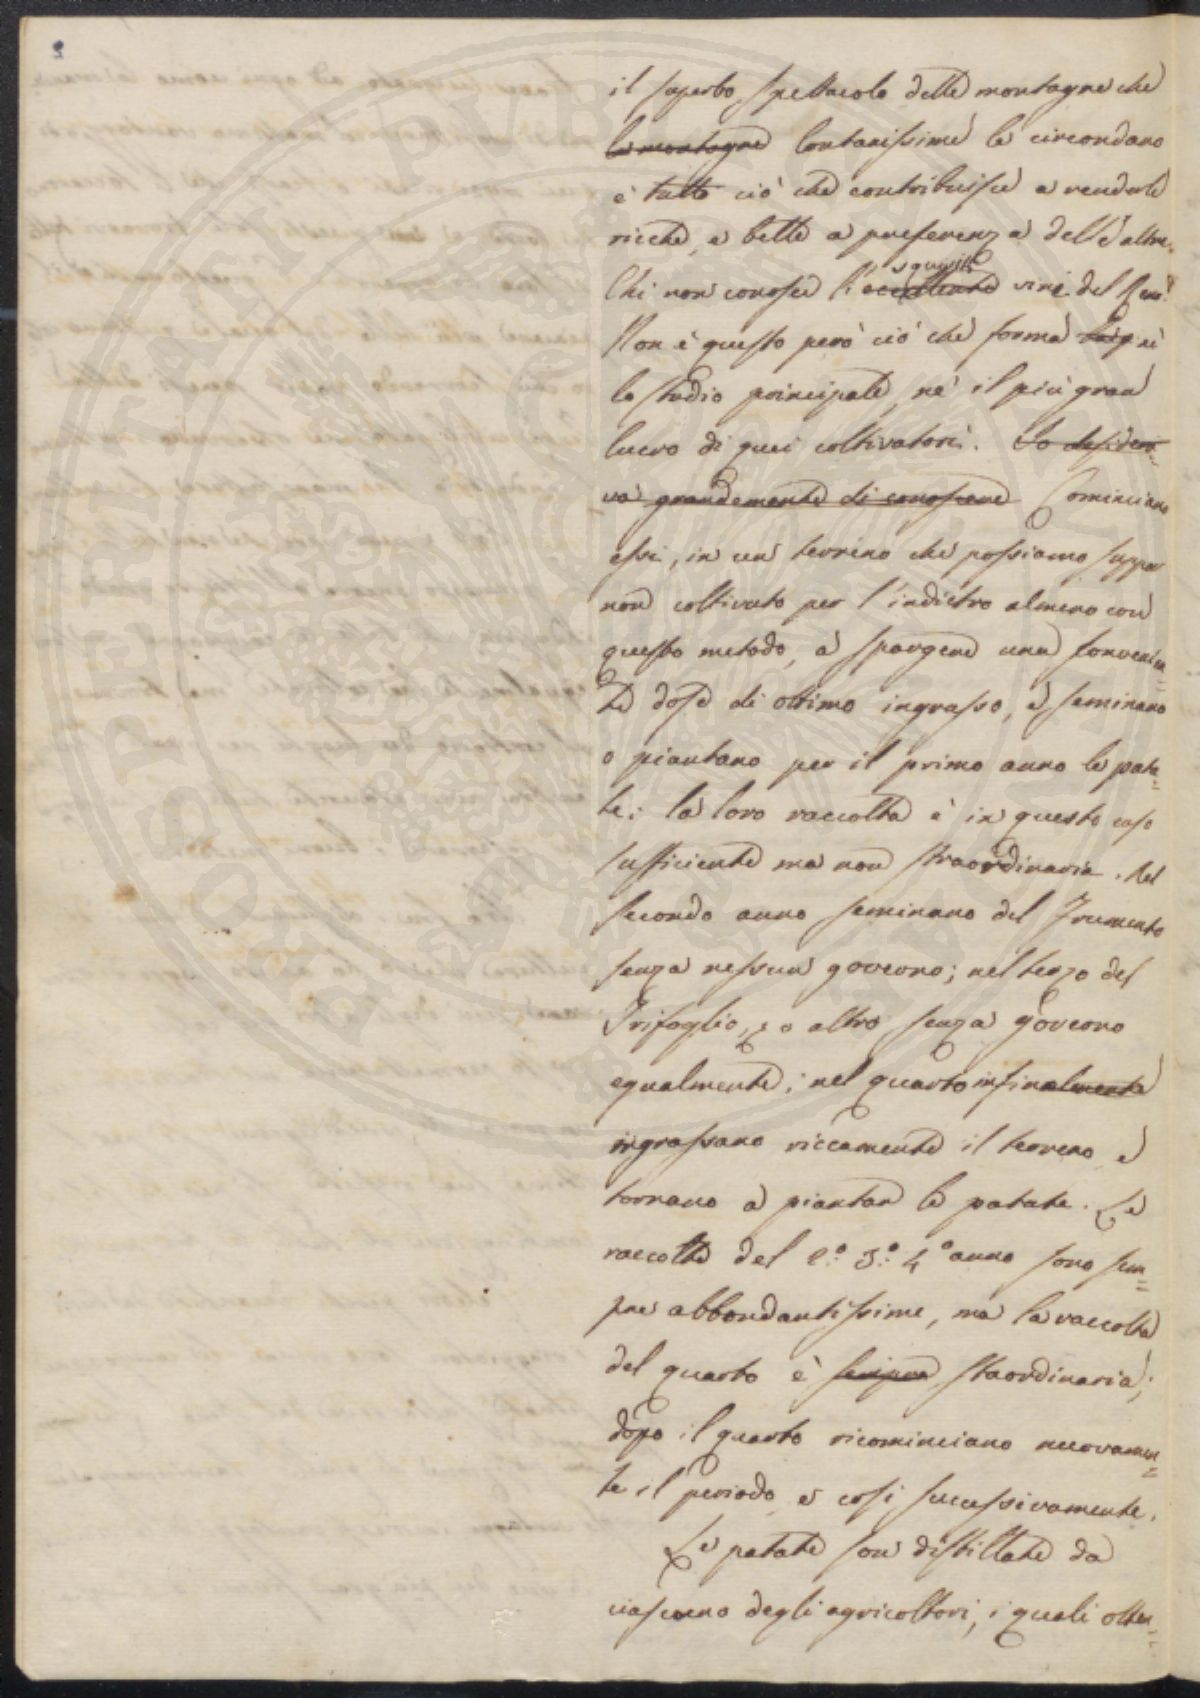 2
il superbo spettacolo delle montagne che
le montagne lontanissime le circondano
e tutto ciò che contribuisce a renderle
ricche, e belle a preferenza delle altre.
squisiti
Chi non conosce l'eccellente vini del Reno?
Non è questo però ciò che forma nè
lo studio principale, nè il più gran
lucro di quei coltivatori. Io desidera=
va grandemente di conoscere Cominciano
essi, in un terreno che possiamo suppor
non coltivato per l'indietro almeno con
questo metodo, a spargere una convenien=
te dose di ottimo ingrasso, e seminano
o piantano per il primo anno le pata=
te; la loro raccolta è in questo caso
sufficiente ma non straordinaria. Nel
secondo anno seminano del Frumento
senza nessun governo; nel terzo del
Trifoglio, o altro senza governo
egualmente; nel quarto infinalmente
ingrassano riccamente il terreno e
tornano a piantar le patate. Le
raccolte del 2.º 3.º 4º anno sono sem=
pre abbondantissime, ma la raccolta
del quarto è sempre staordinaria;
dopo il quarto ricominciano nuovamen=
te il periodo e così successivamente.
Le patate son distillate da
ciascuno degli agricoltori, i quali otten=
PROSPERITATI PUBLICAE